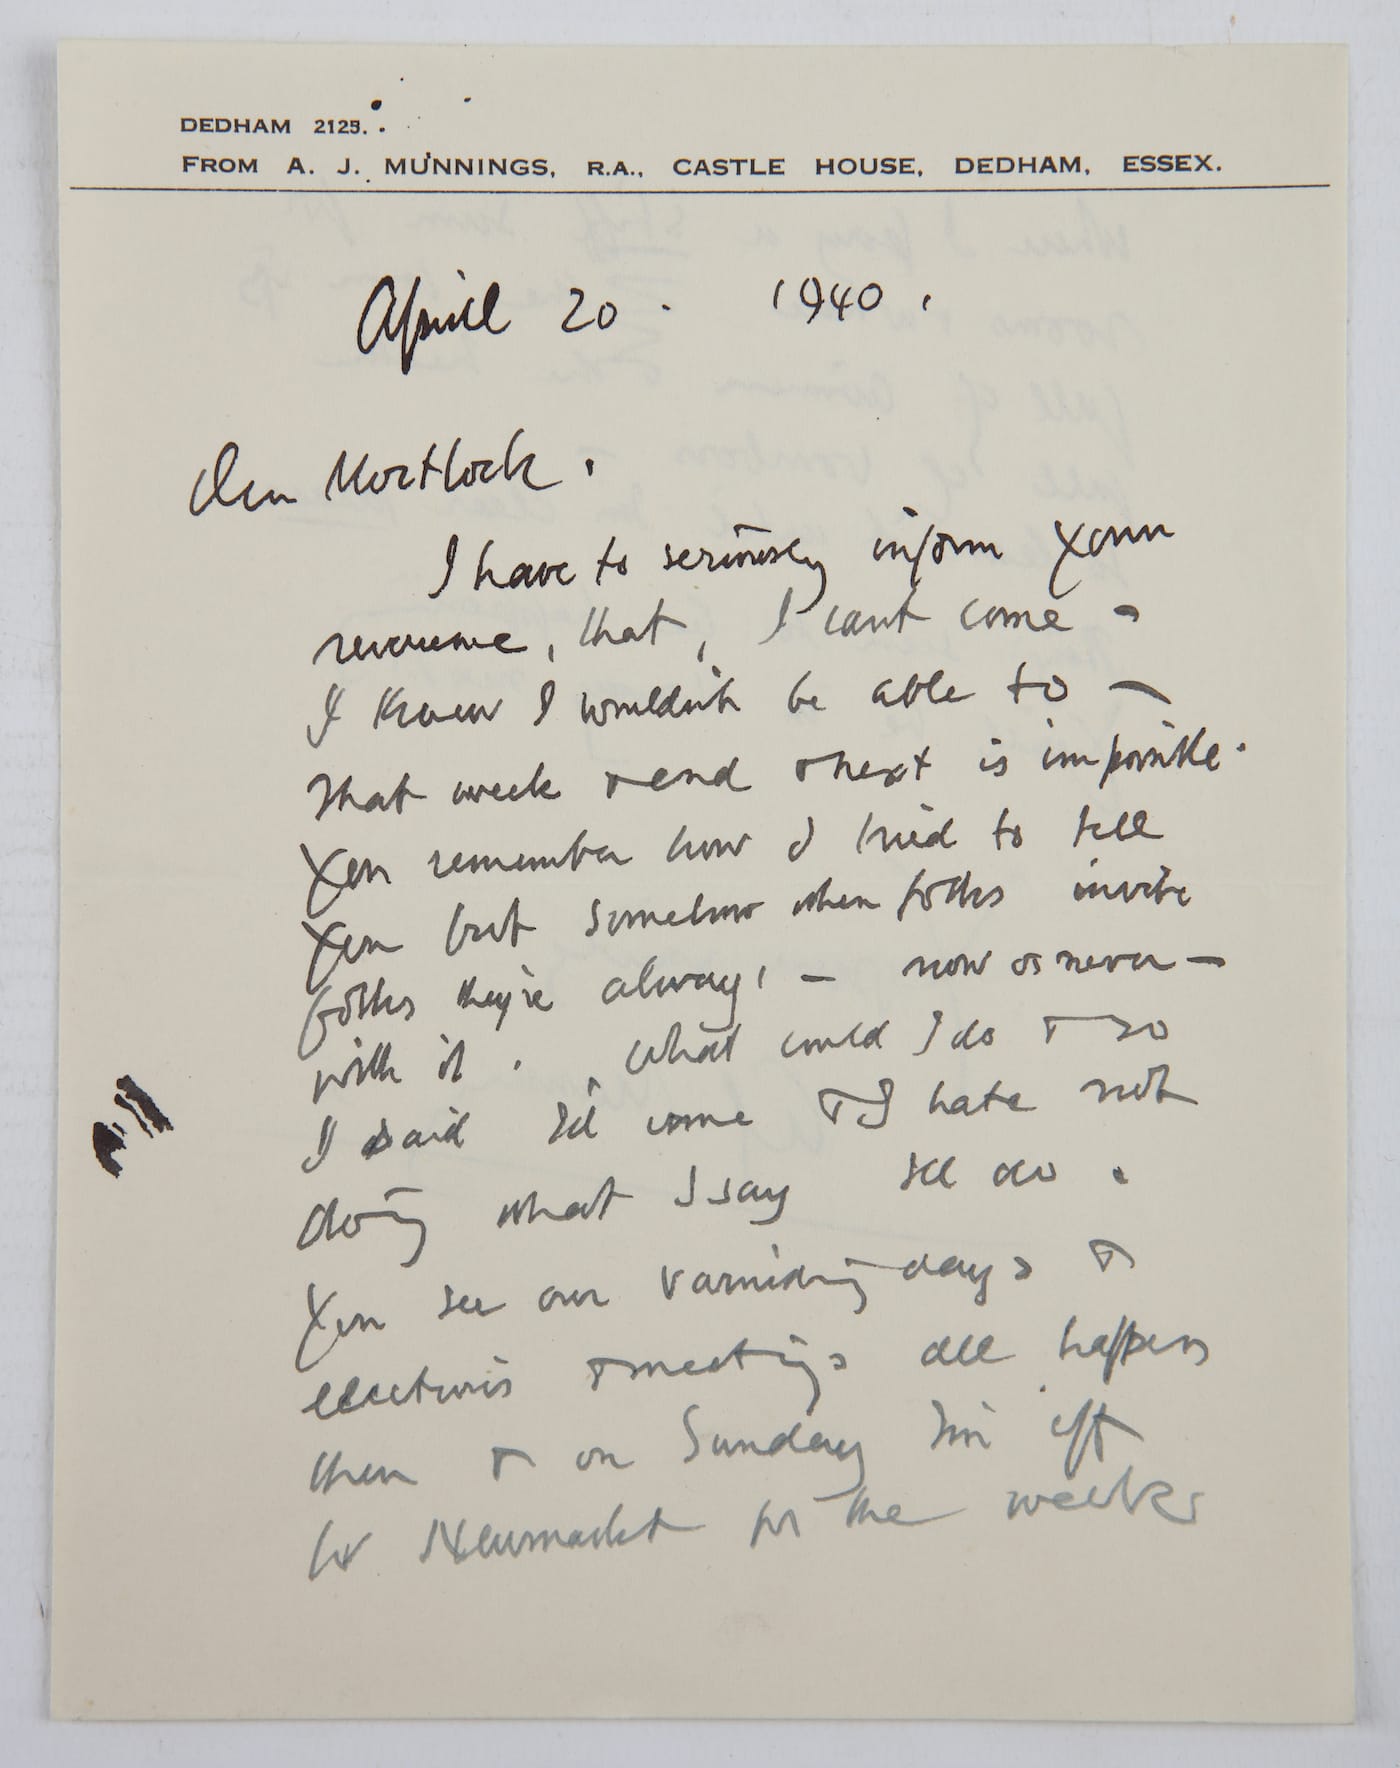 DEDHAM 2125.
FROM A. J. MUNNINGS, R.A., CASTLE HOUSE, DEDHAM, ESSEX.
Aprill 20. 1940.
Dear Mortlock.
I have to seriously inform your
reverence, that, I cant come -
I knew I wouldnt be able to -
that week & end & next is impossible.
You remember how I tried to tell
you but somehow when folks invite
folks they're always - now or never -
with it. What could I do & so
I said I'd come & I hate not
doing what I say I'll do.
You see our varnishing days &
elections & meetings all happen
then & on Sunday I'm off
to Newmarket for the weeks